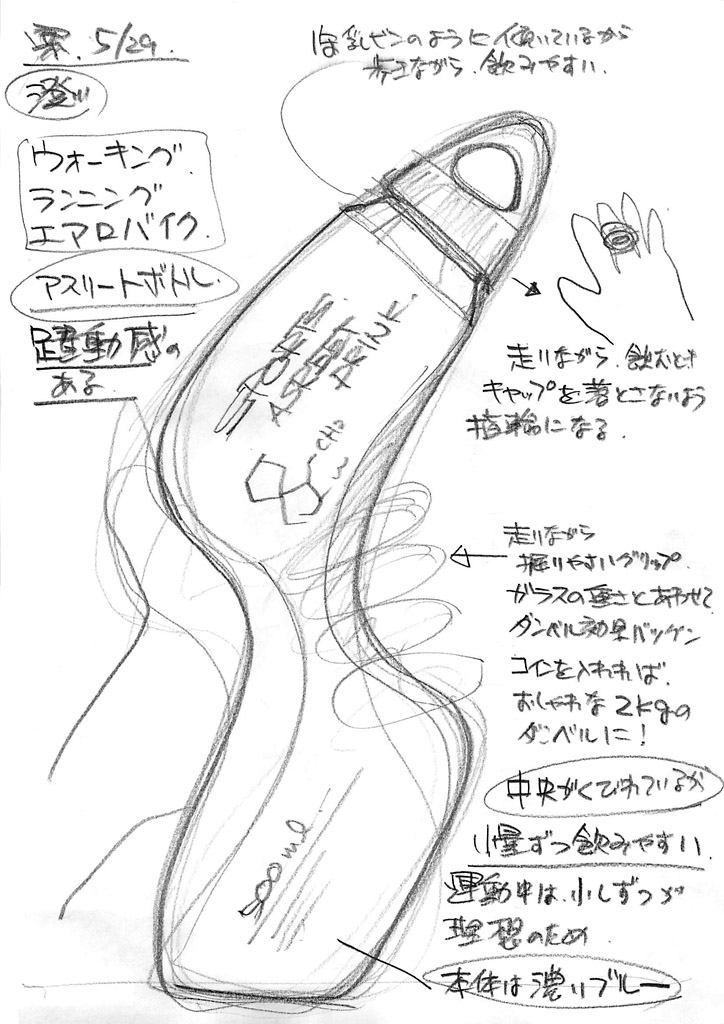 案. 5/29.
澄川
哺乳ビンのように傾いているから
歩きながら、飲みやすい.
ウォーキング.
ランニング
エアロバイク.
アスリートボトル.
躍動感の
ある.
走りながら、飲むとき
キャップを落とさないよう
指輪になる.
DRINK.
CH3
走りながら
握りやすいグリップ.
ガラスの重さとあわせて
ダンベル効果バツグン
コインを入れれば、
おしゃれな2kgの
ダンベルに!
中央がくびれているから
少量ずつ飲みやすい.
運動中は、少しずつが
理想のため
500ml.
本体は濃いブルー